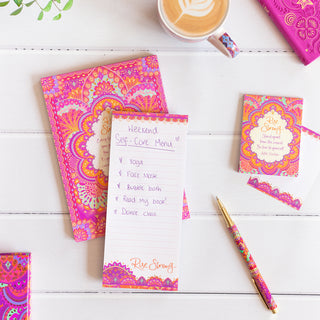 Weekend
Self-Care Menu
Yoga
Face Mask
Bubble bath
Read my book!
Dance class
Rise Strong
Rise
Strong